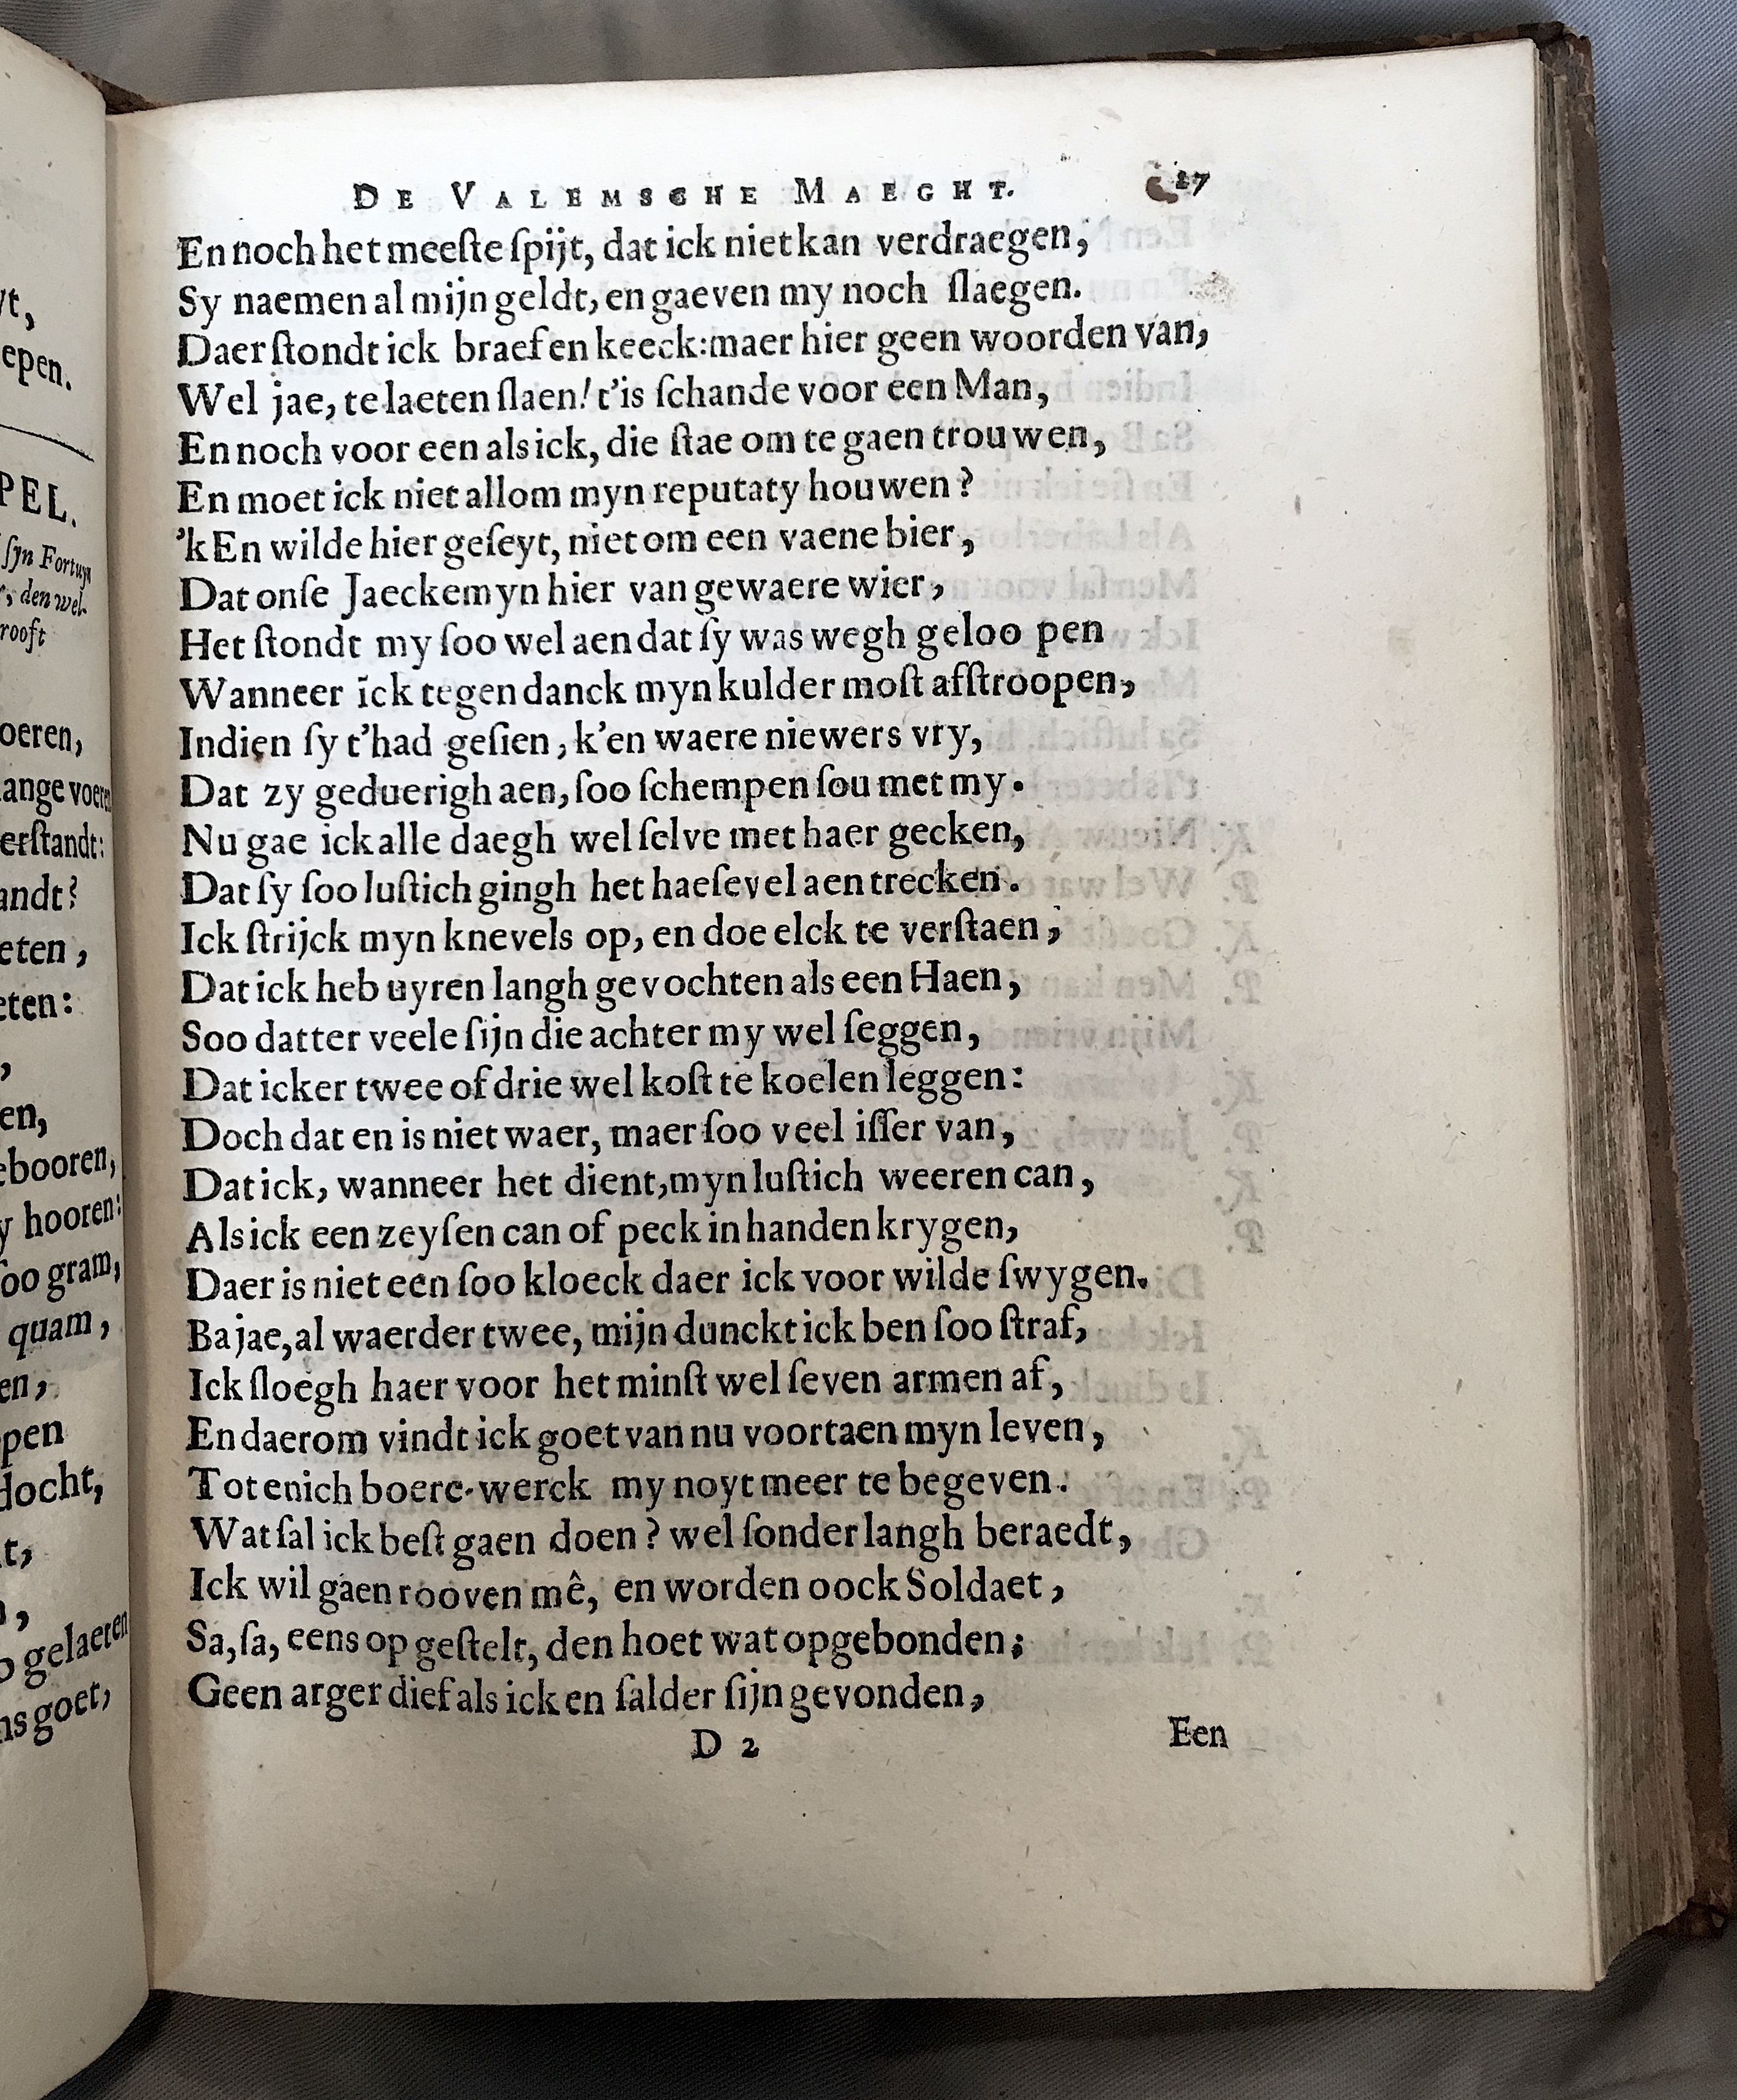 DE VALEMSCHE MAEGHT. 27
En noch het meeſte ſpijt, dat ick niet kan verdraegen,
Sy naemen al mijn geldt, en gaeven my noch ſlaegen.
Daer ſtondt ick braef en keeck: maer hier geen woorden van,
Wel jae, te laeten ſlaen! t'is ſchande voor een Man,
En noch voor een als ick, die ſtae om te gaen trouwen,
En moet ick niet allom myn reputaty houwen?
'k En wilde hier geſeyt, niet om een vaene bier,
Dat onſe Jaeckemyn hier van gewaere wier,
Het ſtondt my ſoo wel aen dat ſy was wegh geloo pen
Wanneer ick tegen danck myn kulder moſt afſtroopen,
Indien ſy t'had geſien, k'en waere niewers vry,
Dat zy geduerigh aen, ſoo ſchempen ſou met my.
Nu gae ick alle daegh wel ſelve met haer gecken,
Dat ſy ſoo luſtich gingh het haeſevel aen trecken.
Ick ſtrijck myn knevels op, en doe elck te verſtaen,
Dat ick heb uyren langh gevochten als een Haen,
Soo datter veele ſijn die achter my wel ſeggen,
Dat icker twee of drie wel koſt te koelen leggen:
Doch dat en is niet waer, maer ſoo veel iſſer van,
Dat ick, wanneer het dient, myn luſtich weeren can,
Als ick een zeyſen can of peck in handen krygen,
Daer is niet een ſoo kloeck daer ick voor wilde ſwygen.
Ba jae, al waerder twee, mijn dunckt ick ben ſoo ſtraf,
Ick ſloegh haer voor het minſt wel ſeven armen af,
En daerom vindt ick goet van nu voortaen myn leven,
Tot enich boere-werck my noyt meer te begeven.
Wat ſal ick beſt gaen doen? wel ſonder langh beraedt,
Ick wil gaen rooven mê, en worden oock Soldaet,
Sa, ſa, eens op geſtelt, den hoet wat opgebonden;
Geen arger dief als ick en ſalder ſijn gevonden,
D 2 Een